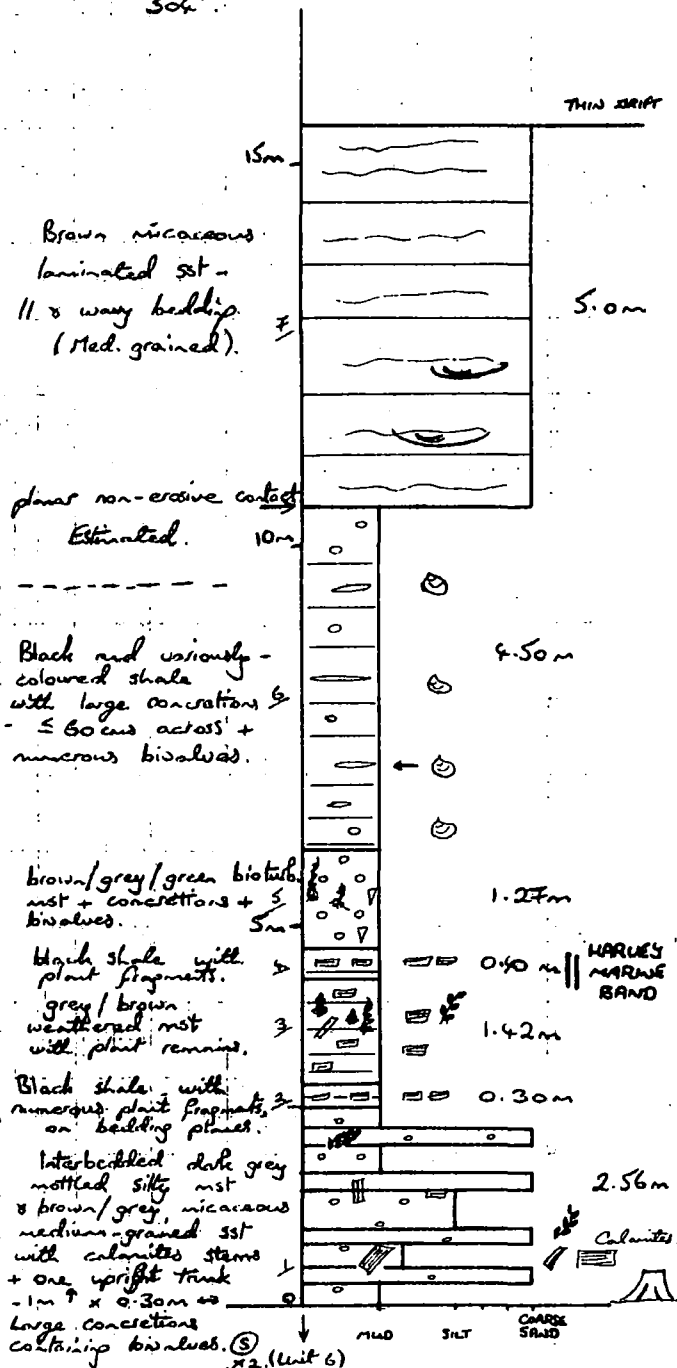 304.
THIN DRIFT
15m
Brown micaceous
laminated sst -
// & wavy bedding.
(Med. grained).
7
5.0m
planar non-erosive contact
Estimated.
10m
Black and variously-
coloured shale
with large concretions
- ≤ 60 cms across +
numerous bivalves.
6
4.50m
brown/grey/green bioturb.
mst + concretions +
bivalves.
5
5m
1.27m
black shale with
plant fragments.
4
0.40m
HARVEY
MARINE
BAND
grey/brown
weathered mst
with plant remains.
3
1.42m
Black shale with
numerous plant fragments
on bedding planes.
0.30m
Interbedded dark grey
mottled silty mst
& brown/grey micaceous
medium-grained sst
with calamites stems
+ one upright trunk
-1m ↑ x 0.30m ↔
Large concretions
containing bivalves. (S)
x2 (Unit 6)
1
2.56m
Calamites
0
MUD
SILT
COARSE
SAND